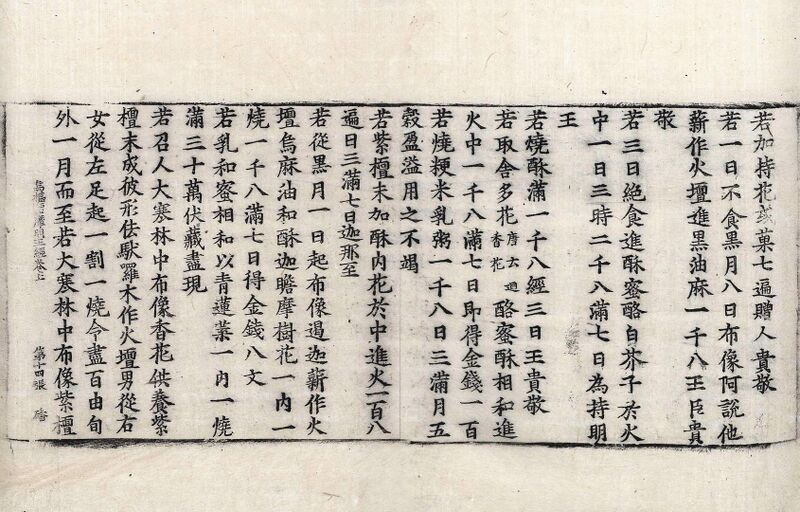 若加持花或菓七遍贈人貴敬
若一日不食黑月八日布像阿說他
薪作火壇進黑油麻一千八王臣貴
敬
若三日絕食進酥蜜酪白芥子於火
中一日三時二千八滿七日為持明
王
若燒酥滿一千八經三日王貴敬
若取舍多花唐云香花酪蜜酥相和進
火中一千八滿七日即得金錢一百
若燒粳米乳粥一千八日三滿月五
穀盈溢用之不竭
若紫檀末加酥內花於中進火一百八
遍日三滿七日迦那至
若從黑月一日起布像遏迦薪作火
壇烏麻油和酥迦瞻摩樹花一內一
燒一千八滿七日得金錢八文
若乳和蜜相和以青蓮葉一內一燒
滿三十萬伏藏盡現
若召人大寒林中布像香花供養紫
檀末成彼形佉馱羅木作火壇男從右
女從左足起一割一燒令盡百由旬
外一月而至若大寒林中布像紫檀
摩明王經卷上 第十四張